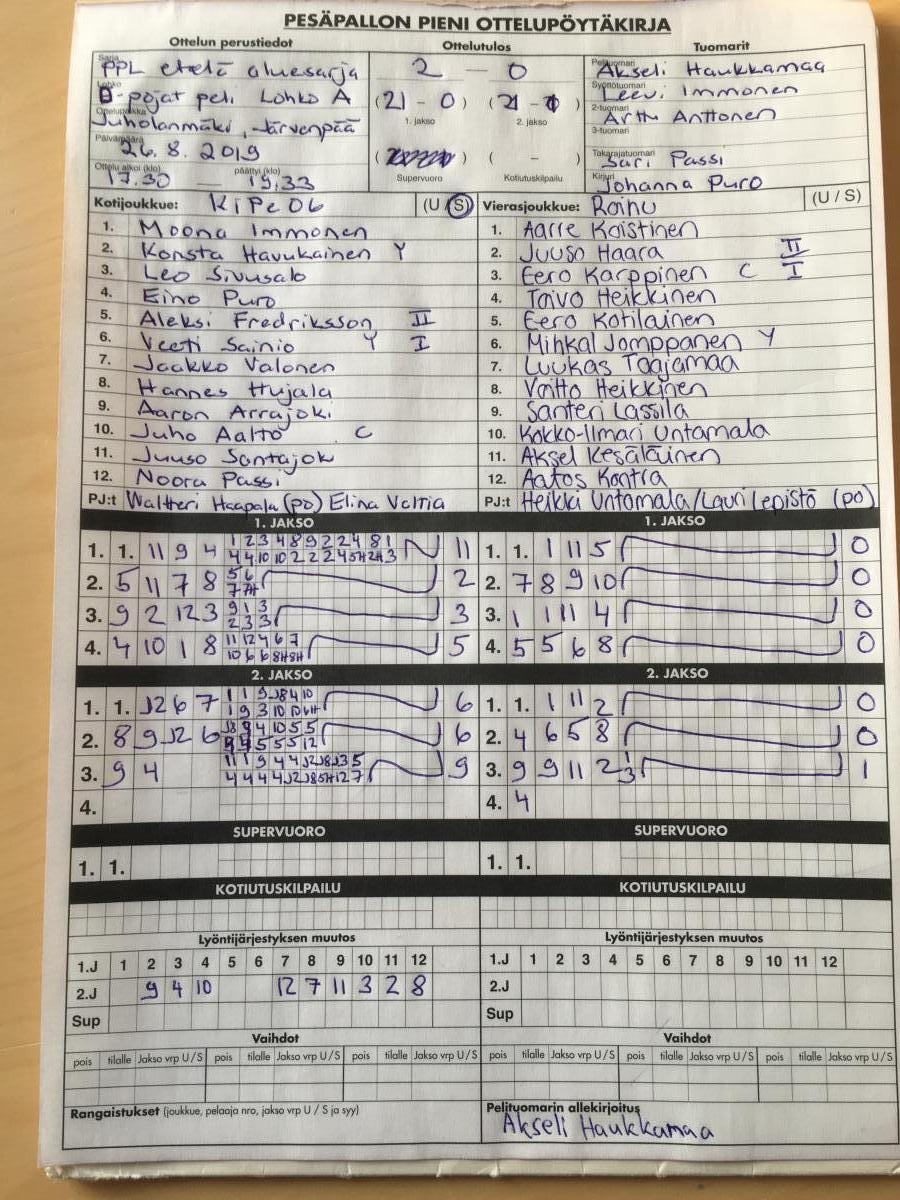 PESÄPALLON PIENI OTTELUPÖYTÄKIRJA
Ottelun perustiedot
Sarja PPL etelä aluesarja
Lohko D-pojat peli Lohko A
Ottelupaikka Juholanmäki, Järvenpää
Päivämäärä 26.8.2019
Ottelu alkoi (klo) 17.30 — päättyi (klo) 19.33
Ottelutulos
2 — 0
(21 - 0) (21 - 1)
1. jakso 2. jakso
( ) ( - )
Supervuoro Kotiutuskilpailu
Tuomarit
Pelituomari Akseli Haukkamaa
Syöttötuomari Leevi Immonen
2-tuomari Arttu Anttonen
3-tuomari
Takarajatuomari Sari Passi
Kirjuri Johanna Puro
Kotijoukkue: KiPe06 (U / S)
1. Moona Immonen
2. Konsta Havukainen Y
3. Leo Sivusalo
4. Eino Puro
5. Aleksi Fredriksson II
6. Veeti Sainio Y I
7. Jaakko Valonen
8. Hannes Hujala
9. Aaron Arrajoki
10. Juho Aalto C
11. Juuso Santajok
12. Noora Passi
PJ:t Waltteri Haapala (po) Elina Valtia
Vierasjoukkue: Roihu (U / S)
1. Aarre Koistinen
2. Juuso Haara II
3. Eero Karppinen C I
4. Toivo Heikkinen
5. Eero Kotilainen
6. Mihkal Jomppanen Y
7. Luukas Taajamaa
8. Voitto Heikkinen
9. Santeri Lassila
10. Kokko-Ilmari Untamala
11. Aksel Kesäläinen
12. Aatos Kontra
PJ:t Heikki Untamala/Lauri Lepistö (po)
1. JAKSO
1. 1. 11 9 4 1 2 3 4 8 9 2 2 4 8 1 11
4 4 10 10 2 2 2 4 5H 2H 3
2. 5 11 7 8 5 6 2
7 7H
3. 9 2 12 3 9 1 3 3
2 3 3
4. 4 10 1 8 11 12 4 6 7 5
10 6 6 8H 8H
2. JAKSO
1. 1. J2 6 7 1 1 9 J8 4 10 6
1 9 3 10 10 6H
2. 8 9 J2 6 J8 9 4 10 5 5 6
5 5 5 12
3. 9 4 11 1 9 4 4 J2 J8 J3 5 9
4 4 4 4 J2 J8 5H 12 7
4.
SUPERVUORO
1. 1.
KOTIUTUSKILPAILU
Lyöntijärjestyksen muutos
1.J 1 2 3 4 5 6 7 8 9 10 11 12
2.J 9 4 10 12 7 11 3 2 8
Sup
Vaihdot
pois tilalle Jakso vrp U / S pois tilalle Jakso vrp U / S pois tilalle Jakso vrp U / S
Rangaistukset (joukkue, pelaaja nro, jakso vrp U / S ja syy)
1. JAKSO
1. 1. 1 11 5 0
2. 7 8 9 10 0
3. 1 1 11 4 0
4. 5 5 6 8 0
2. JAKSO
1. 1. 1 11 2 0
2. 4 6 5 8 0
3. 9 9 11 2 1 1
3
4. 4
SUPERVUORO
1. 1.
KOTIUTUSKILPAILU
Lyöntijärjestyksen muutos
1.J 1 2 3 4 5 6 7 8 9 10 11 12
2.J
Sup
Vaihdot
pois tilalle Jakso vrp U / S pois tilalle Jakso vrp U / S pois tilalle Jakso vrp U / S
Pelituomarin allekirjoitus
Akseli Haukkamaa